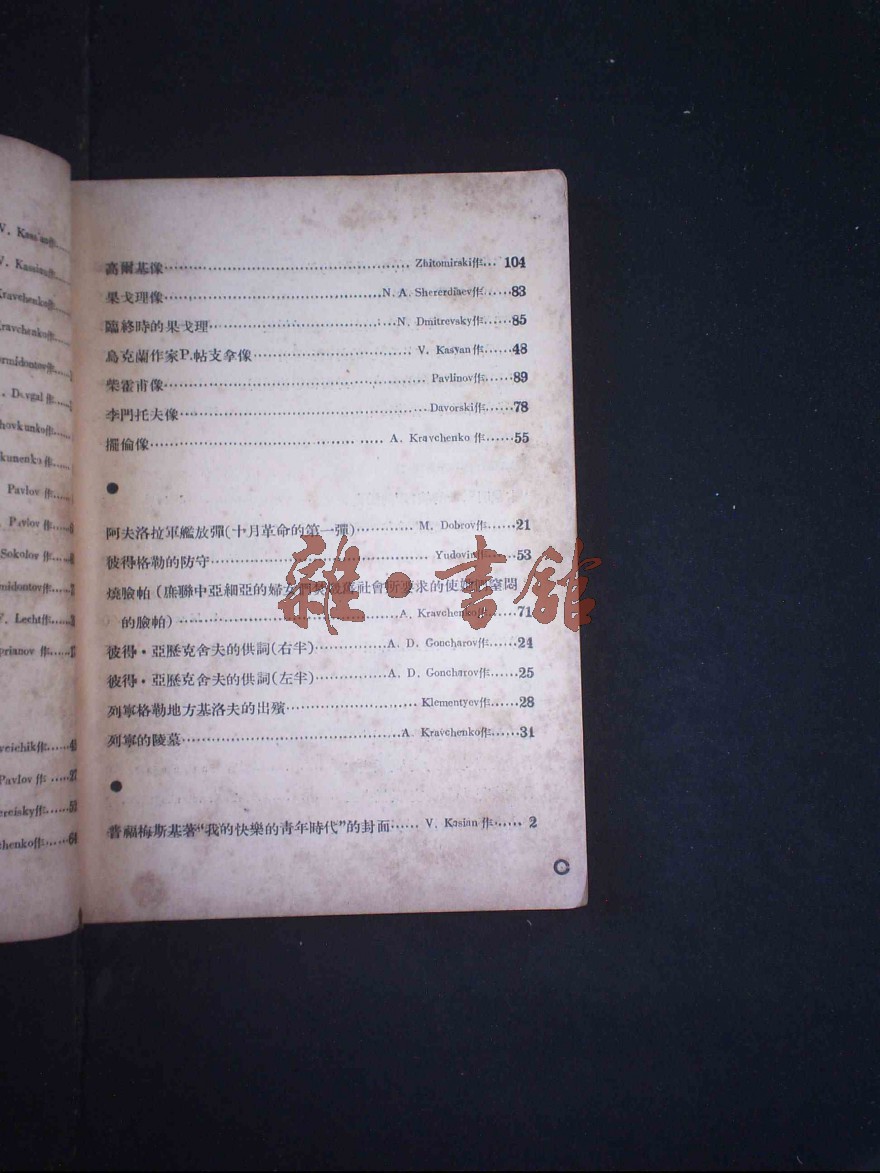 V. Kassian作
V. Kassian作
Kravchenko作
Kravchenko作
ermidontov作
Dovgal作
hovkunko作
kunenko作
Pavlov作
Pavlov作
Sokolov作
midontov作
F. Lecht作
prianov作
veichik作
Pavlov作 27
ereisky作
henko作 64
高爾基像 Zhitomirski作 104
果戈理像 N. A. Shererdiaev作 83
臨終時的果戈理 N. Dmitrevsky作 85
烏克蘭作家P.帖支拿像 V. Kasyan作 48
柴霍甫像 Pavlinov作 89
李門托夫像 Davorski作 78
擺倫像 A. Kravchenko作 55
●
阿夫洛拉軍艦放彈(十月革命的第一彈) M. Dobrov作 21
彼得格勒的防守 Yudovin作 53
燒臉帕(蘇聯中亞細亞的婦女們 社會所要求的使 窒悶
的臉帕) A. Kravchenko作 71
彼得·亞歷克舍夫的供詞(右半) A. D. Goncharov作 24
彼得·亞歷克舍夫的供詞(左半) A. D. Goncharov作 25
列寧格勒地方基洛夫的出殯 Klementyev作 28
列寧的陵墓 A. Kravchenko作 31
●
普福梅斯基著“我的快樂的青年時代”的封面 V. Kasian作 2
雜·書館